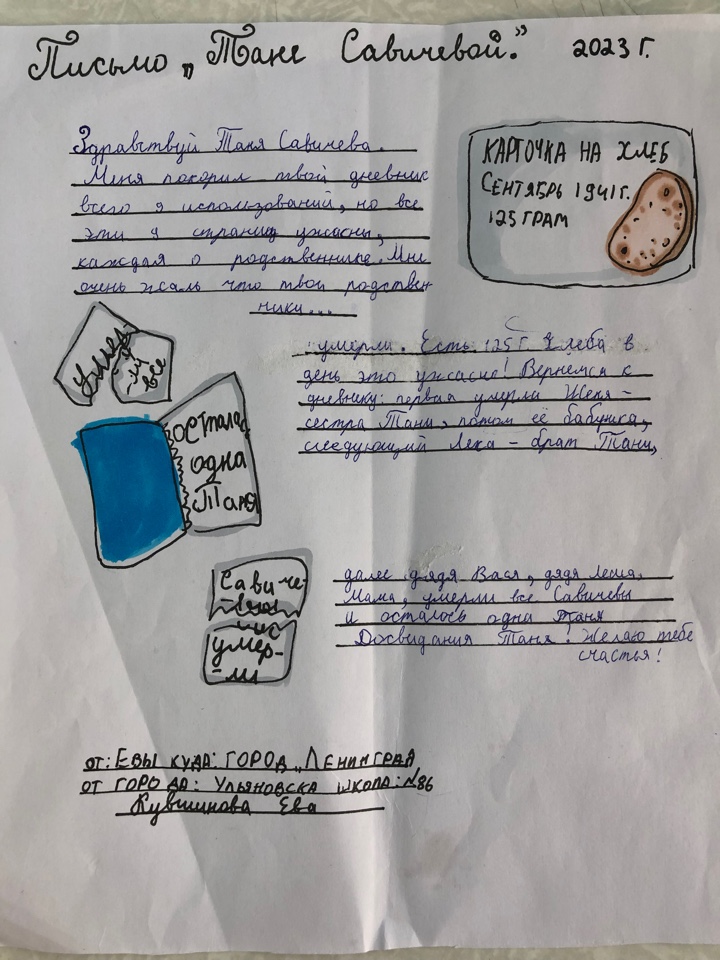 Письмо „Тане Савичевой.” 2023 г.
Здравствуй Таня Савичева.
Меня покорил твой дневник
всего 9 использований, но все
эти 9 страниц ужасны,
каждая о родственнике. Мне
очень жаль что твои родствен
ники...
КАРТОЧКА НА ХЛЕБ
СЕНТЯБРЬ 1941 г.
125 ГРАМ
Умер-
-ли
все
умерли. Есть 125 г. хлеба в
день это ужасно! Вернемся к
дневнику: первая умерла Женя -
сестра Тани, потом её бабушка,
следующий Лека - брат Тани,
Осталась
одна
Таня
Савиче-
умер-
-ли
далее дядя Вася, дядя Леша,
Мама, умерли все Савичевы
и осталось одна Таня
Досвидания Таня! Желаю тебе
счастья!
ОТ: ЕВЫ КУДА: ГОРОД „ЛЕНИНГРАД
ОТ ГОРОДА: УЛЬЯНОВСКА ШКОЛА: №86
Кувшинова Ева